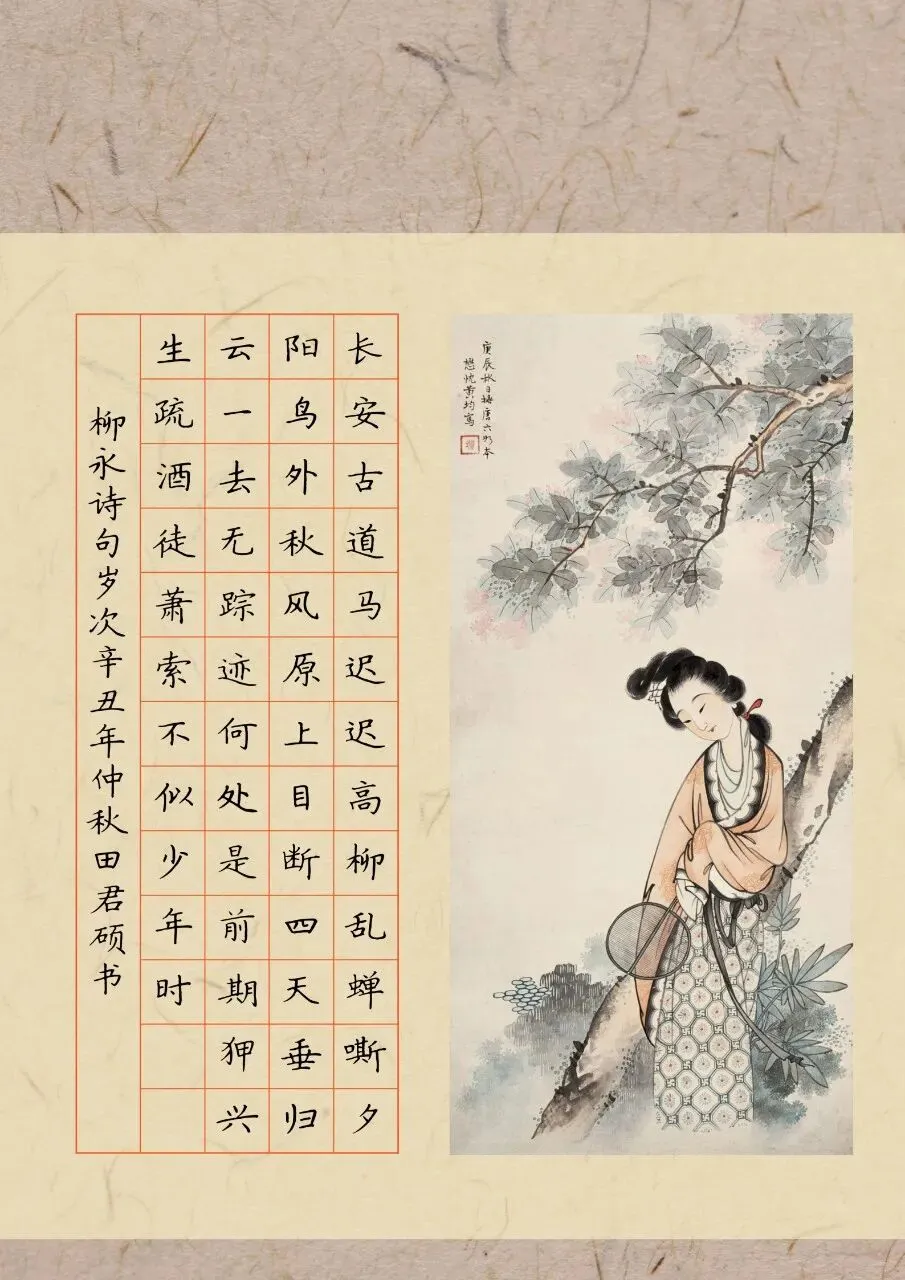 长安古道马迟迟高柳乱蝉嘶夕
阳鸟外秋风原上目断四天垂归
云一去无踪迹何处是前期狎兴
生疏酒徒萧索不似少年时
柳永诗句岁次辛丑年仲秋田君硕书
庚辰秋日橅唐六如本
懋忱黄均写